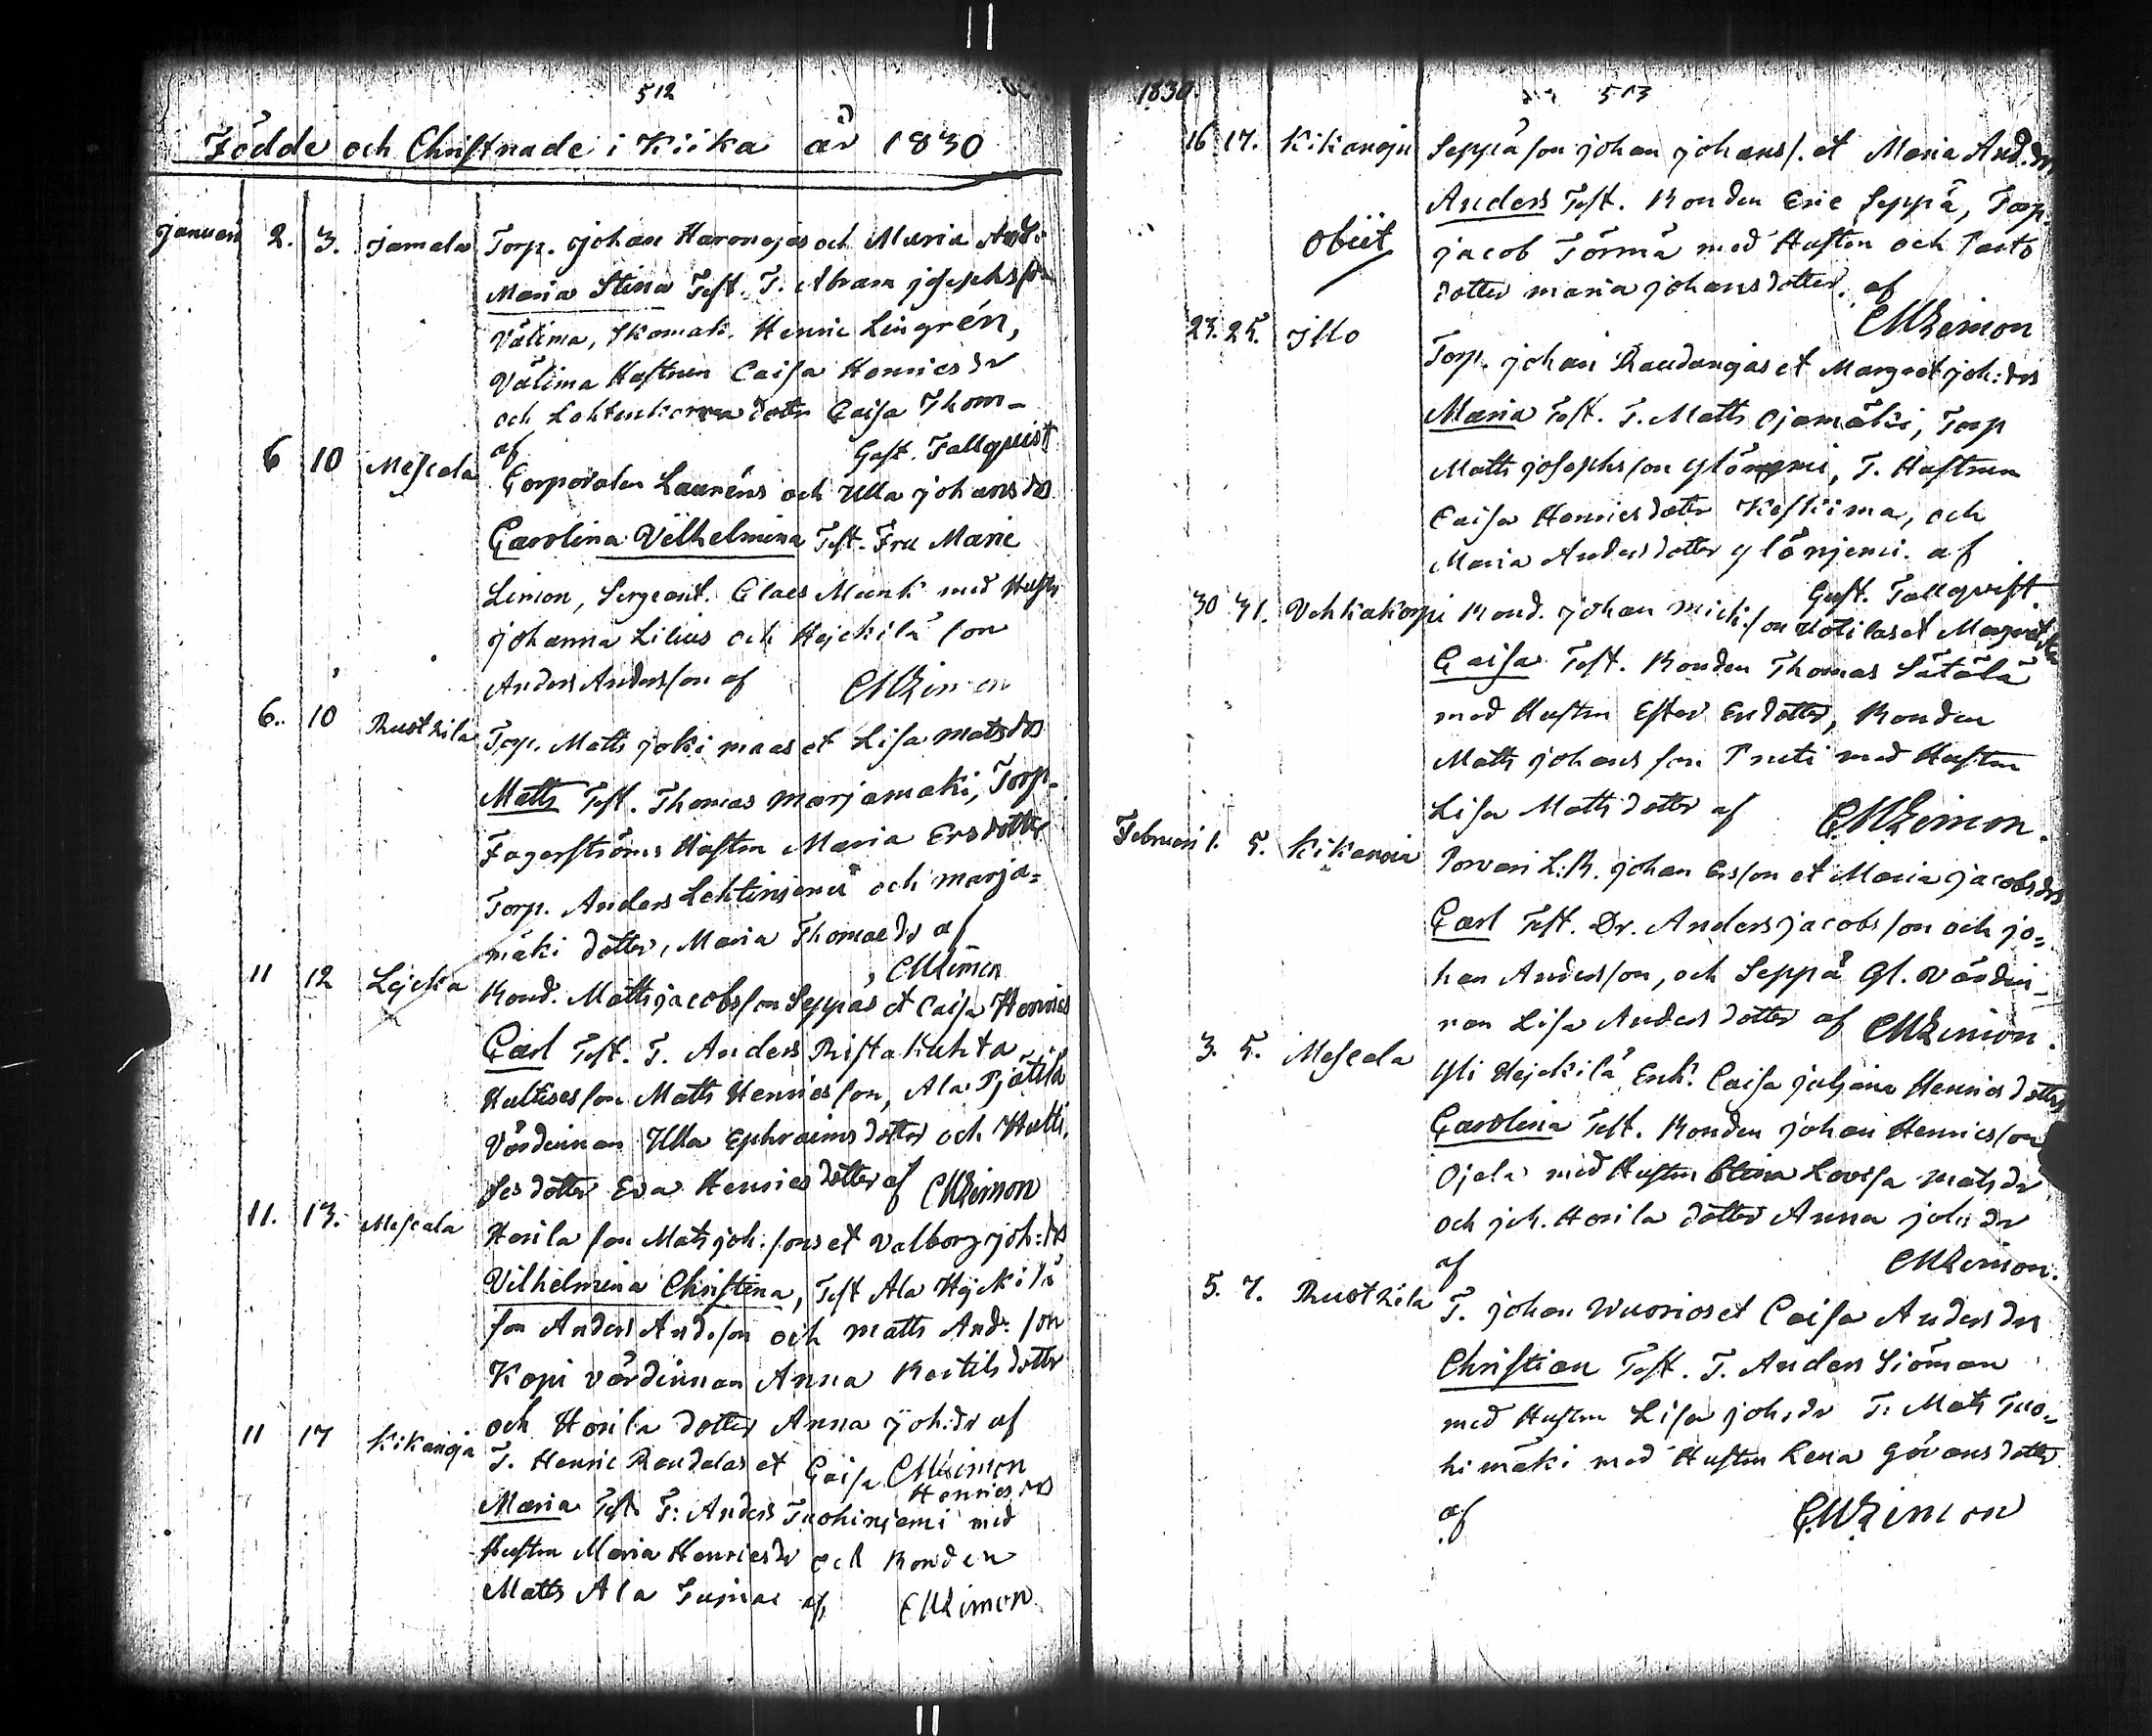 512
Födde och Christnade i Kiika år 1830
Januari 2. 3. Jamala Torp. Johan Haronojas och Maria And:
Maria Stina Test. T. Abram Josephsson
Välima, Skomak. Henric Lingrén,
Välima Hustrun Caisa Henricsdr
och Lehtenkorva dotter Caisa Thom-
af Gust. Tallquist
6 10 Mescala Corporalen Lauréns och Ulla Johansdrs
Carolina Vilhelmina Test. Fru Marie
Limon, Sergeant. Claes Munk med Hustr
Johanna Lilius och Hejckilä son
Anders Andersson af CMLimon
6. 10 Rustkila Torp. Matts Jokimaas et Lisa Matsdrs
Matts Test. Thomas Marjamäki, Torp.
Fagerströms Hustru Maria Ersdotter
Torp. Anders Lehtinjemi och Marja=
mäki dotter, Maria Thomaedr af
CMLimon
11 12 Lejcka Bond. Matts Jacobsson Seppas et Caisa Henrics
Carl Test. T. Anders Ristakuhta
Hultises son Matts Henricsson, Ala Pjätilä
Värdinnan Ulla Ephraimsdotter och Hulti.
ses dotter Eva Henricsdotter af CMLimon
11. 13. Mescala Horila son Mats Joh. sons et Valborg Joh:drs
Vilhelmina Christina, Test Ala Hejckilä
son Anders Andersson och Matts And: son
Kopi värdinnan Anna Bertilsdotter
och Horila dotter Anna Joh:dr af
CMLimon
11 17 Kikanoja T. Henric Raudalas et Caisa Henricsdrs
Maria Test. T: Anders Tuohinjemi med
Hustru Maria Henricsdr och Bonden
Matts Ala af CMLimon
1830. 513
16 17. Kikanoja Seppä son Johan Johanss. et Maria And.drs
Anders Test. Bonden Eric Seppä, Torp.
Obiit Jacob Törmä med Hustru och
dotter Maria Johansdotter. af
CMLimon
23. 25. Illo Torp. Johan Raudanojas et Margret Joh:drs
Maria Test. T. Matts Ojamäki, Torp
Matts Josephsson Ylönjemi, T. Hustrun
Caisa Henricsdotter Keskiima, och
Maria Andersdotter Ylönjemi. af
Gust. Tallqvist
30 31. Vehkakorpi Bond. Johan Mick.son Kotilas et Margret
Caisa Test. Bonden Thomas Sätälä
med Hustru Ester Ersdotter, Bonden
Matts Johansson med Hustru
Lisa Mattsdotter af CMLimon.
Februari 1. 5. Kikanoia Porvari L:R. Johan Ersson et Maria Jacobsdrs
Carl Test. Dr. Anders Jacobsson och Jo=
han Andersson, och Seppä Gl. Värdin-
nan Lisa Andersdotter af CMLimon.
3. 5. Mescala Yli Hejckilä Enk. Caisa Juljana Henricsdotters
Carolina Test. Bonden Johan Henricsson
Ojala med Hustru Stina Lovisa Matsdr
och Joh. Horila dotter Anna Johsdr
af CMLimon.
5. 7. Rustkila T. Johan Wuorios et Caisa Andersdrs
Christian Test. T. Anders Siöman
med Hustru Lisa Joh:dr T. Mats Tuo=
himäki med Hustru Lena Göransdotter
af CMLimon